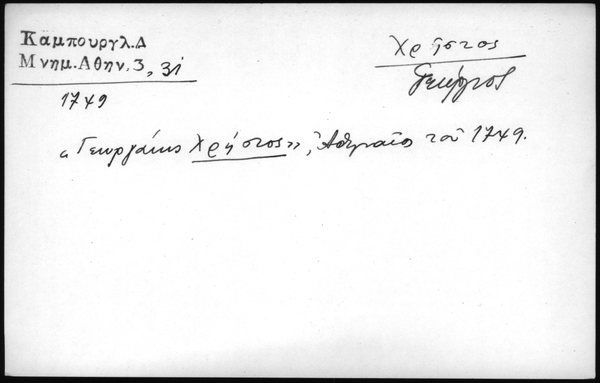 Καμπουργλ.Δ
Μνημ.Αθην.3, 31
1749
Χρήστος
Γεώργιος
«Γεωργάκης Χρήστος», Ἀθηναῖος τοῦ 1749.